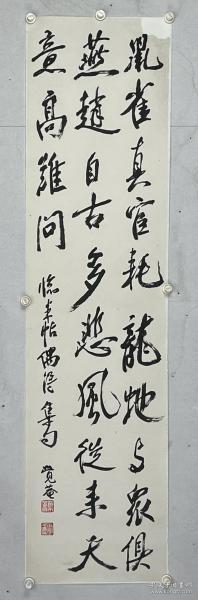 鼠雀真官耗龍虵与眾俱
燕趙自古多悲風從来天
意高難問
临米帖偶得集句
覺菴